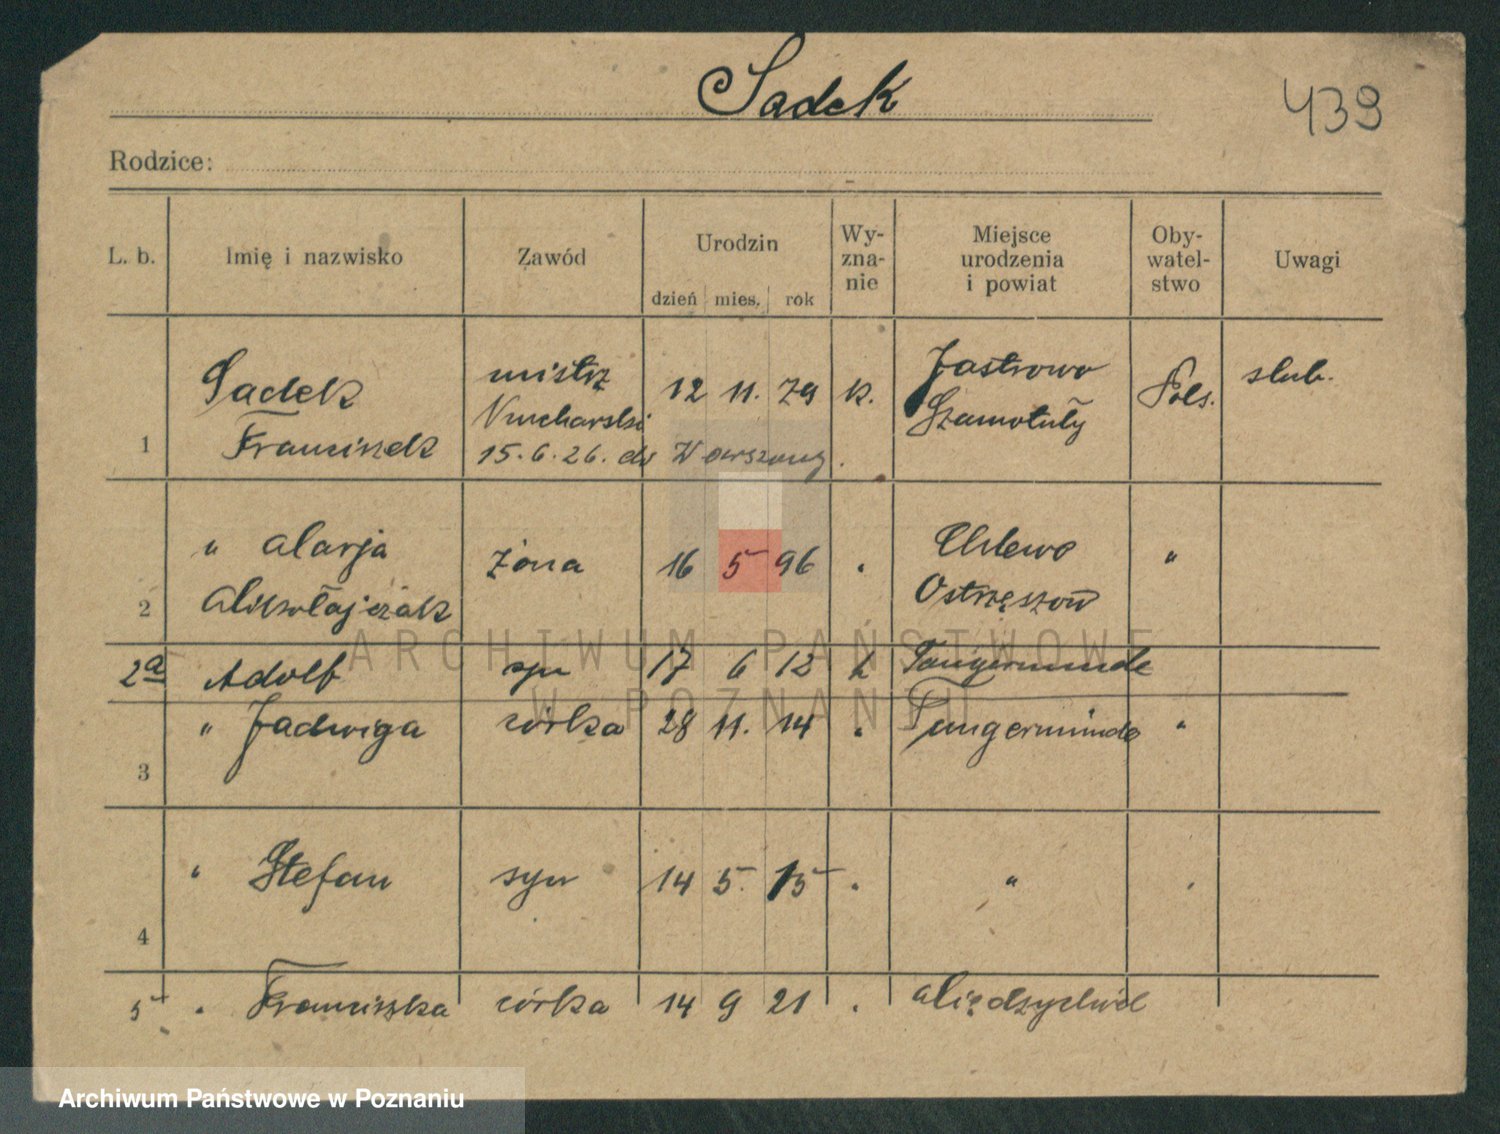 Sadek
439
Rodzice:
L. b. Imię i nazwisko Zawód Urodzin dzień mies. rok Wy-zna-nie Miejsce urodzenia i powiat Oby-watel-stwo Uwagi
Sadek mistrz 12 11. 79 k. Jastrowo Pols. slub.
1 Franciszek 15.6.26. do Warszawy. Szamotuły
" Marja żona 16 5 96 " Chlewo "
2 Mikołajczak Ostrzeszów
2a Adolf syn 17 6 12 k Tangermünde
" Jadwiga córka 28 11. 14 " Tangermünde "
3
" Stefan syn 14 5. 15 " " "
4
5 " Franciszka córka 14 9 21 " Międzychód
ARCHIWUM PAŃSTWOWE
W POZNANIU
Archiwum Państwowe w Poznaniu